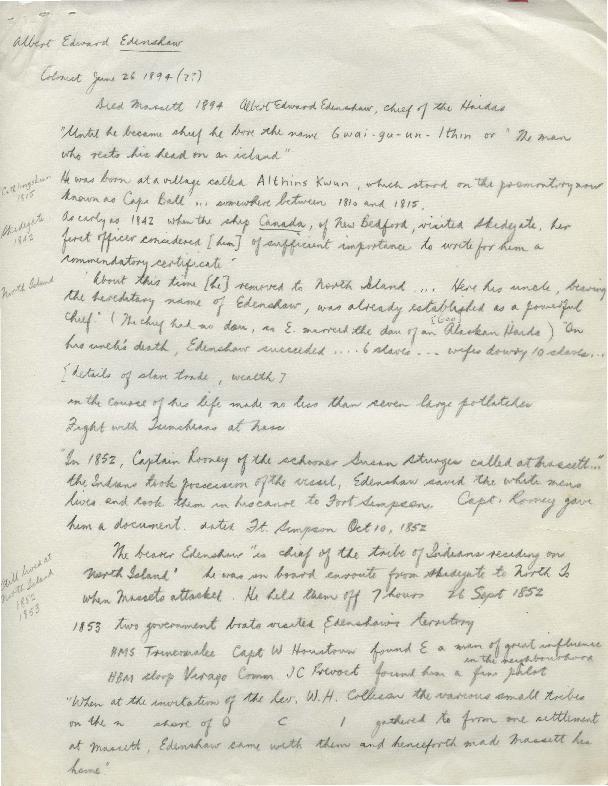 Albert Edward Edenshaw
Colonist June 26 1894 (??)
Died Massett 1894 Albert Edward Edenshaw, chief of the Haidas
"Until he became chief he bore the name Gwai-gu-un-lthin or "The man
who rests his head on an island"
He was born at a village called Althins Kwun, which stood on the promontory now
known as Cape Ball ... somewhere between 1810 and 1815.
1815
As early as 1842 when the ship Canada, of New Bedford, visited Skidegate, her
Skidegate
1842
first officer considered [him] of sufficient importance to write for him a
commendatory certificate"
North Island
"About this time [he] removed to North Island .... Here his uncle, bearing
the hereditary name of Edenshaw, was already established as a powerful
chief" (The chief had no dau, as E. married the dau of an Alaskan Haida) "On
his uncle's death, Edenshaw succeeded .... 6 slaves ... wifes dowry 10 slaves...
[details of slave trade, wealth]
in the course of his life made no less than seven large potlatches
Fight with Tsimcheans at Nass
"In 1852, Captain Rooney of the schooner Susan Sturges called at Massett..."
the Indians took possession of the vessel, Edenshaw saved the white mens
lives and took them in his canoe to Fort Simpson. Capt. Rooney gave
him a document. dated Ft. Simpson Oct 10, 1852
The bearer Edenshaw "is chief of the tribe of Indians residing on
North Island" he was on board enroute from Skidegate to North Is
when Massets attacked. He held them off 7 hours 26 Sept 1852
Still lived at
North Island
1852
1853
1853 two government boats visited Edenshaw's territory
HMS Trincomalee Capt W Houstoun found E a man of great influence
in the neighbourhood
HBM sloop Virago Comm. JC Prevost found him a fine pilot
"When at the invitation of the Rev. W.H. Collison the various small tribes
on the n shore of Q C I gathered to from one settlement
at Massett, Edenshaw came with them and henceforth made Massett his
home"